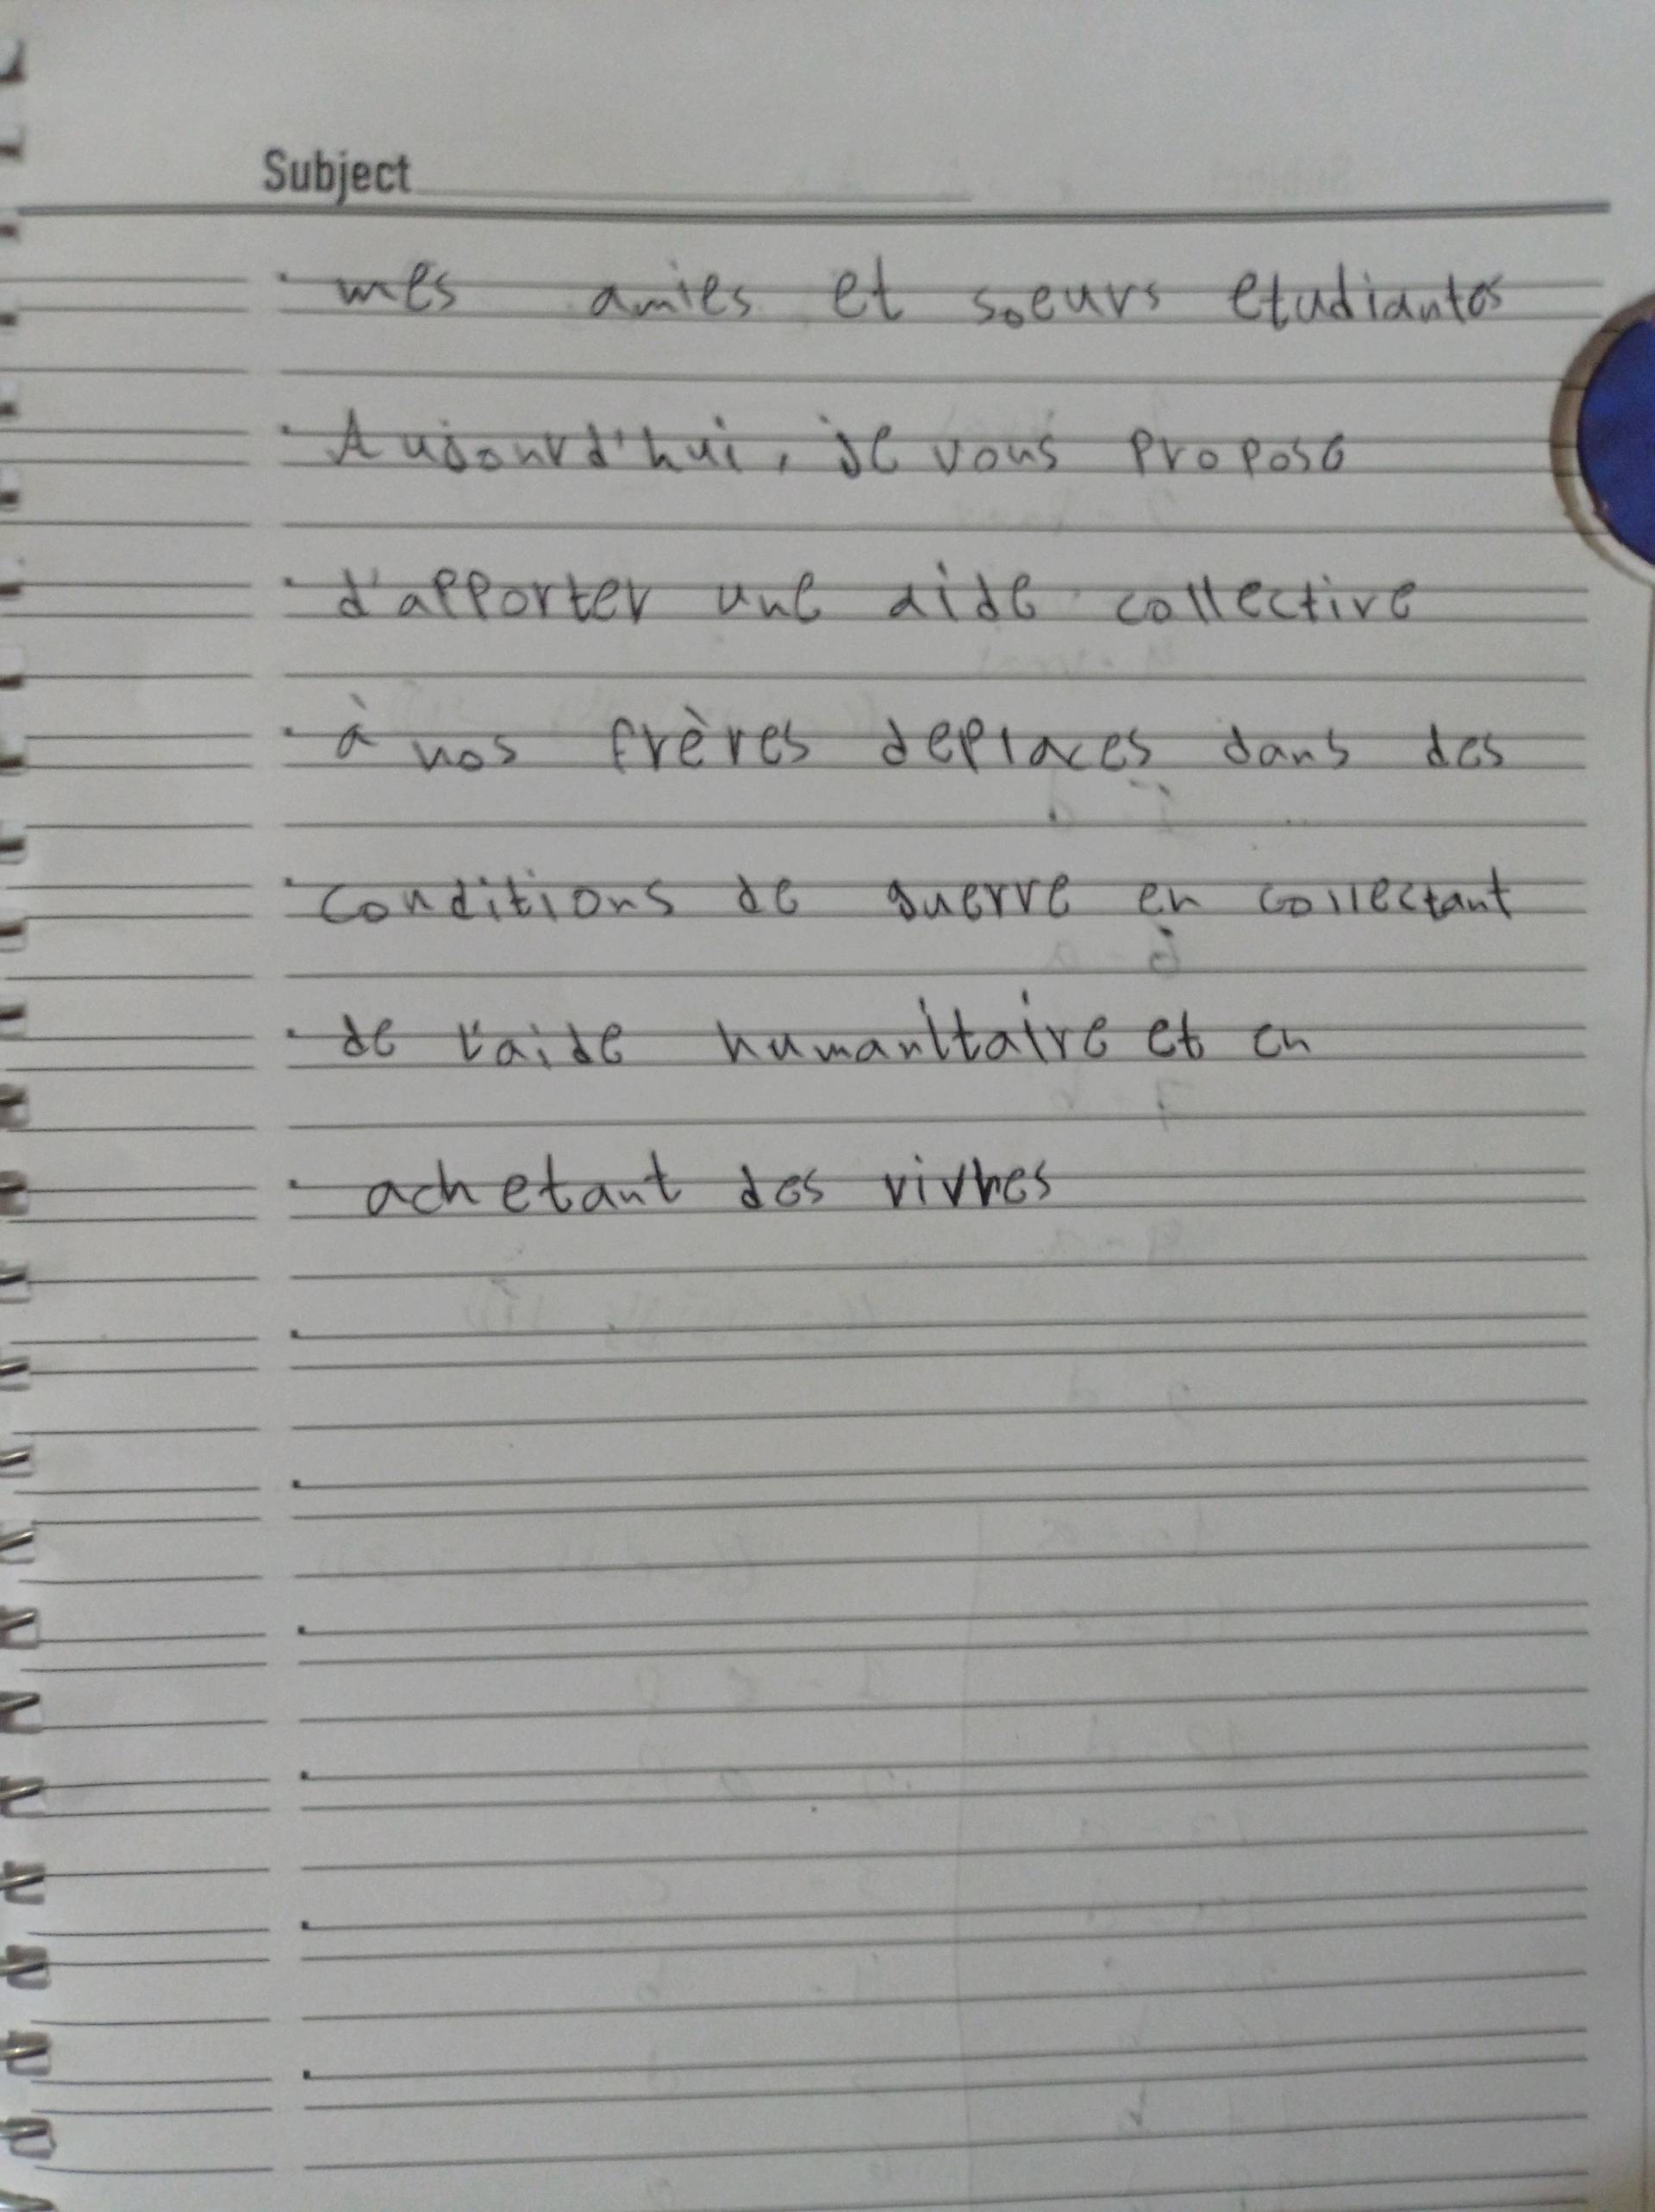 Subject
mes amies et soeurs etudiantes
Aujourd'hui, je vous propose
d'apporter une aide collective
à nos frères deplaces dans des
conditions de guerre en collectant
de l'aide humanitaire et en
achetant des vivres